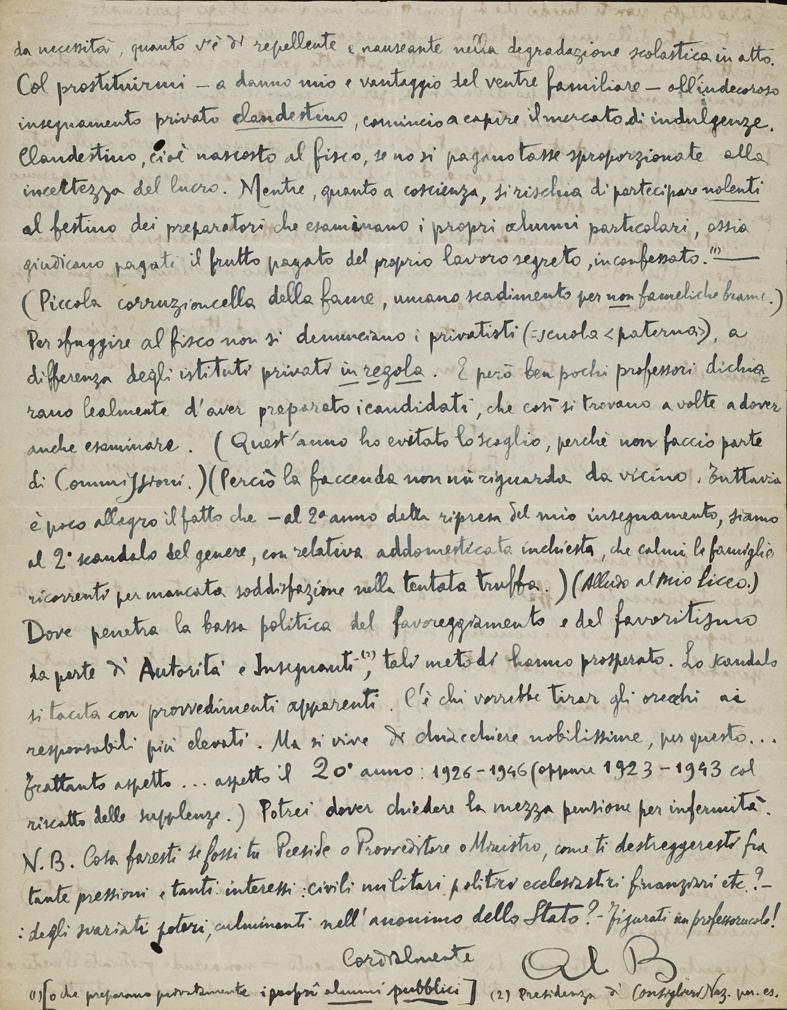 da necessità, quanto v'è di repellente e nauseante nella degradazione scolastica in atto.
Col prostituirmi – a danno mio e vantaggio del ventre familiare – all'indecoroso
insegnamento privato clandestino, comincio a capire il mercato di indulgenze.
Clandestino, cioè nascosto al fisco, se no si pagano tasse sproporzionate alla
incertezza del lucro. Mentre, quanto a coscienza, si rischia di partecipare nolenti
al festino dei preparatori che esaminano i propri alunni particolari, ossia
giudicano pagati il frutto pagato del proprio lavoro segreto, inconfessato.(1)—
(Piccola corruzioncella della fame, umano scadimento per non fameliche brame.)
Per sfuggire al fisco non si denunciano i privatisti (=scuola <paterna>), a
differenza degli istituti privati in regola. E però ben pochi professori dichia=
rano lealmente d'aver preparato i candidati, che così si trovano a volte a dover
anche esaminare. (Quest'anno ho evitato lo scoglio, perchè non faccio parte
di Commissioni.) (Perciò la faccenda non mi riguarda da vicino. Tuttavia
è poco allegro il fatto che – al 2° anno della ripresa del mio insegnamento, siamo
al 2° scandalo del genere, con relativa addomesticata inchiesta, che calmi le famiglie
ricorrenti per mancata soddisfazione nella tentata truffa.) (Alludo al mio Liceo.)
Dove penetra la bassa politica del favoreggiamento e del favoritismo
da parte di Autorità e Insegnanti(2), tali metodi hanno prosperato. Lo scandalo
si tacita con provvedimenti apparenti. C'è chi vorrebbe tirar gli orecchi ai
responsabili più elevati. Ma si vive di chiacchiere nobilissime, per questo...
Frattanto aspetto... aspetto il 20° anno: 1926–1946 (oppure 1923–1943 col
riscatto delle supplenze.) Potrei dover chiedere la mezza pensione per infermità.
N.B. Cosa faresti se fossi tu Preside o Provveditore o Ministro, come ti destreggeresti fra
tante pressioni e tanti interessi: civili militari politici ecclesiastici finanziari etc.?–
: degli svariati poteri, culminanti nell'anonimo dello Stato? – Figurati un professorucolo!
Cordialmente Al B
(1) [o che preparano privatamente i propri alunni pubblici] (2) Presidenza di Consiglieri Naz. per. es.